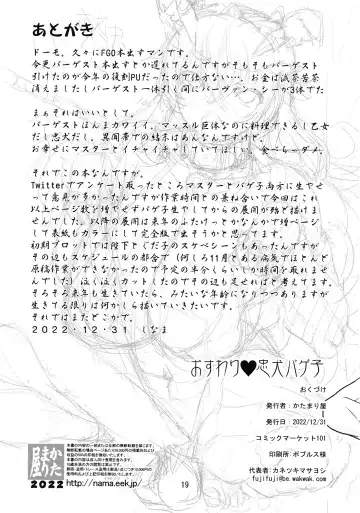 あとがき
ドーモ。久々にFGO本出すマンです。
今更バーゲスト本出すとか遅れてるんですがそもそもバーゲスト
引けたのが今年の復刻PUだったので仕方ない…。お金は滅茶苦茶
消えましたしバーゲスト一体引く間にバーヴァン・シーが3体でた
まぁそれはいいとして。
バーゲストほんまカワイイ。マッスル巨体なのに料理できるし乙女
だし忠犬だし。異聞帯での結末はあんなんですけど。
お幸せにマスターとイチャイチャしていてほしい。食べちゃダメ。
それでこの本なんですが。
Twitterでアンケート取ったところマスターとバゲ子両方に生やせ
って意見が多かったんですが作業時間との兼ね合いで今回はこれ
以上ページ数を増やせずバゲ子生やしてからの展開が殆ど描けま
せんでした。以降の展開は来年のふたけっとかなんかで増ページ
して表紙もカラーにして完全版で出そうかと思ってます。
初期プロットでは陛下とぐだ子のスケベシーンもあったんですが
その辺もスケジュールの都合で(何しろ11月とある病気でほとんど
原稿作業ができなかったので予定の半分くらいしか時間を取れま
せんでした)泣く泣くカットしたのでその辺も足せればと考えてます。
そろそろ来年も生きていたら、みたいな年齢になりつつありますが
生きていればまたどこかで。
2022・12・31 しなま
おすわり♥忠犬バゲ子
おくづけ
発行者：かたまり屋
発行日：2022/12/31
コミックマーケット101
印刷所：ポプルス様
代表者：カネツキマサヨシ
fujifuji@be.wakwak.com
かたまり屋
2022
http://nama.eek.jp/
19